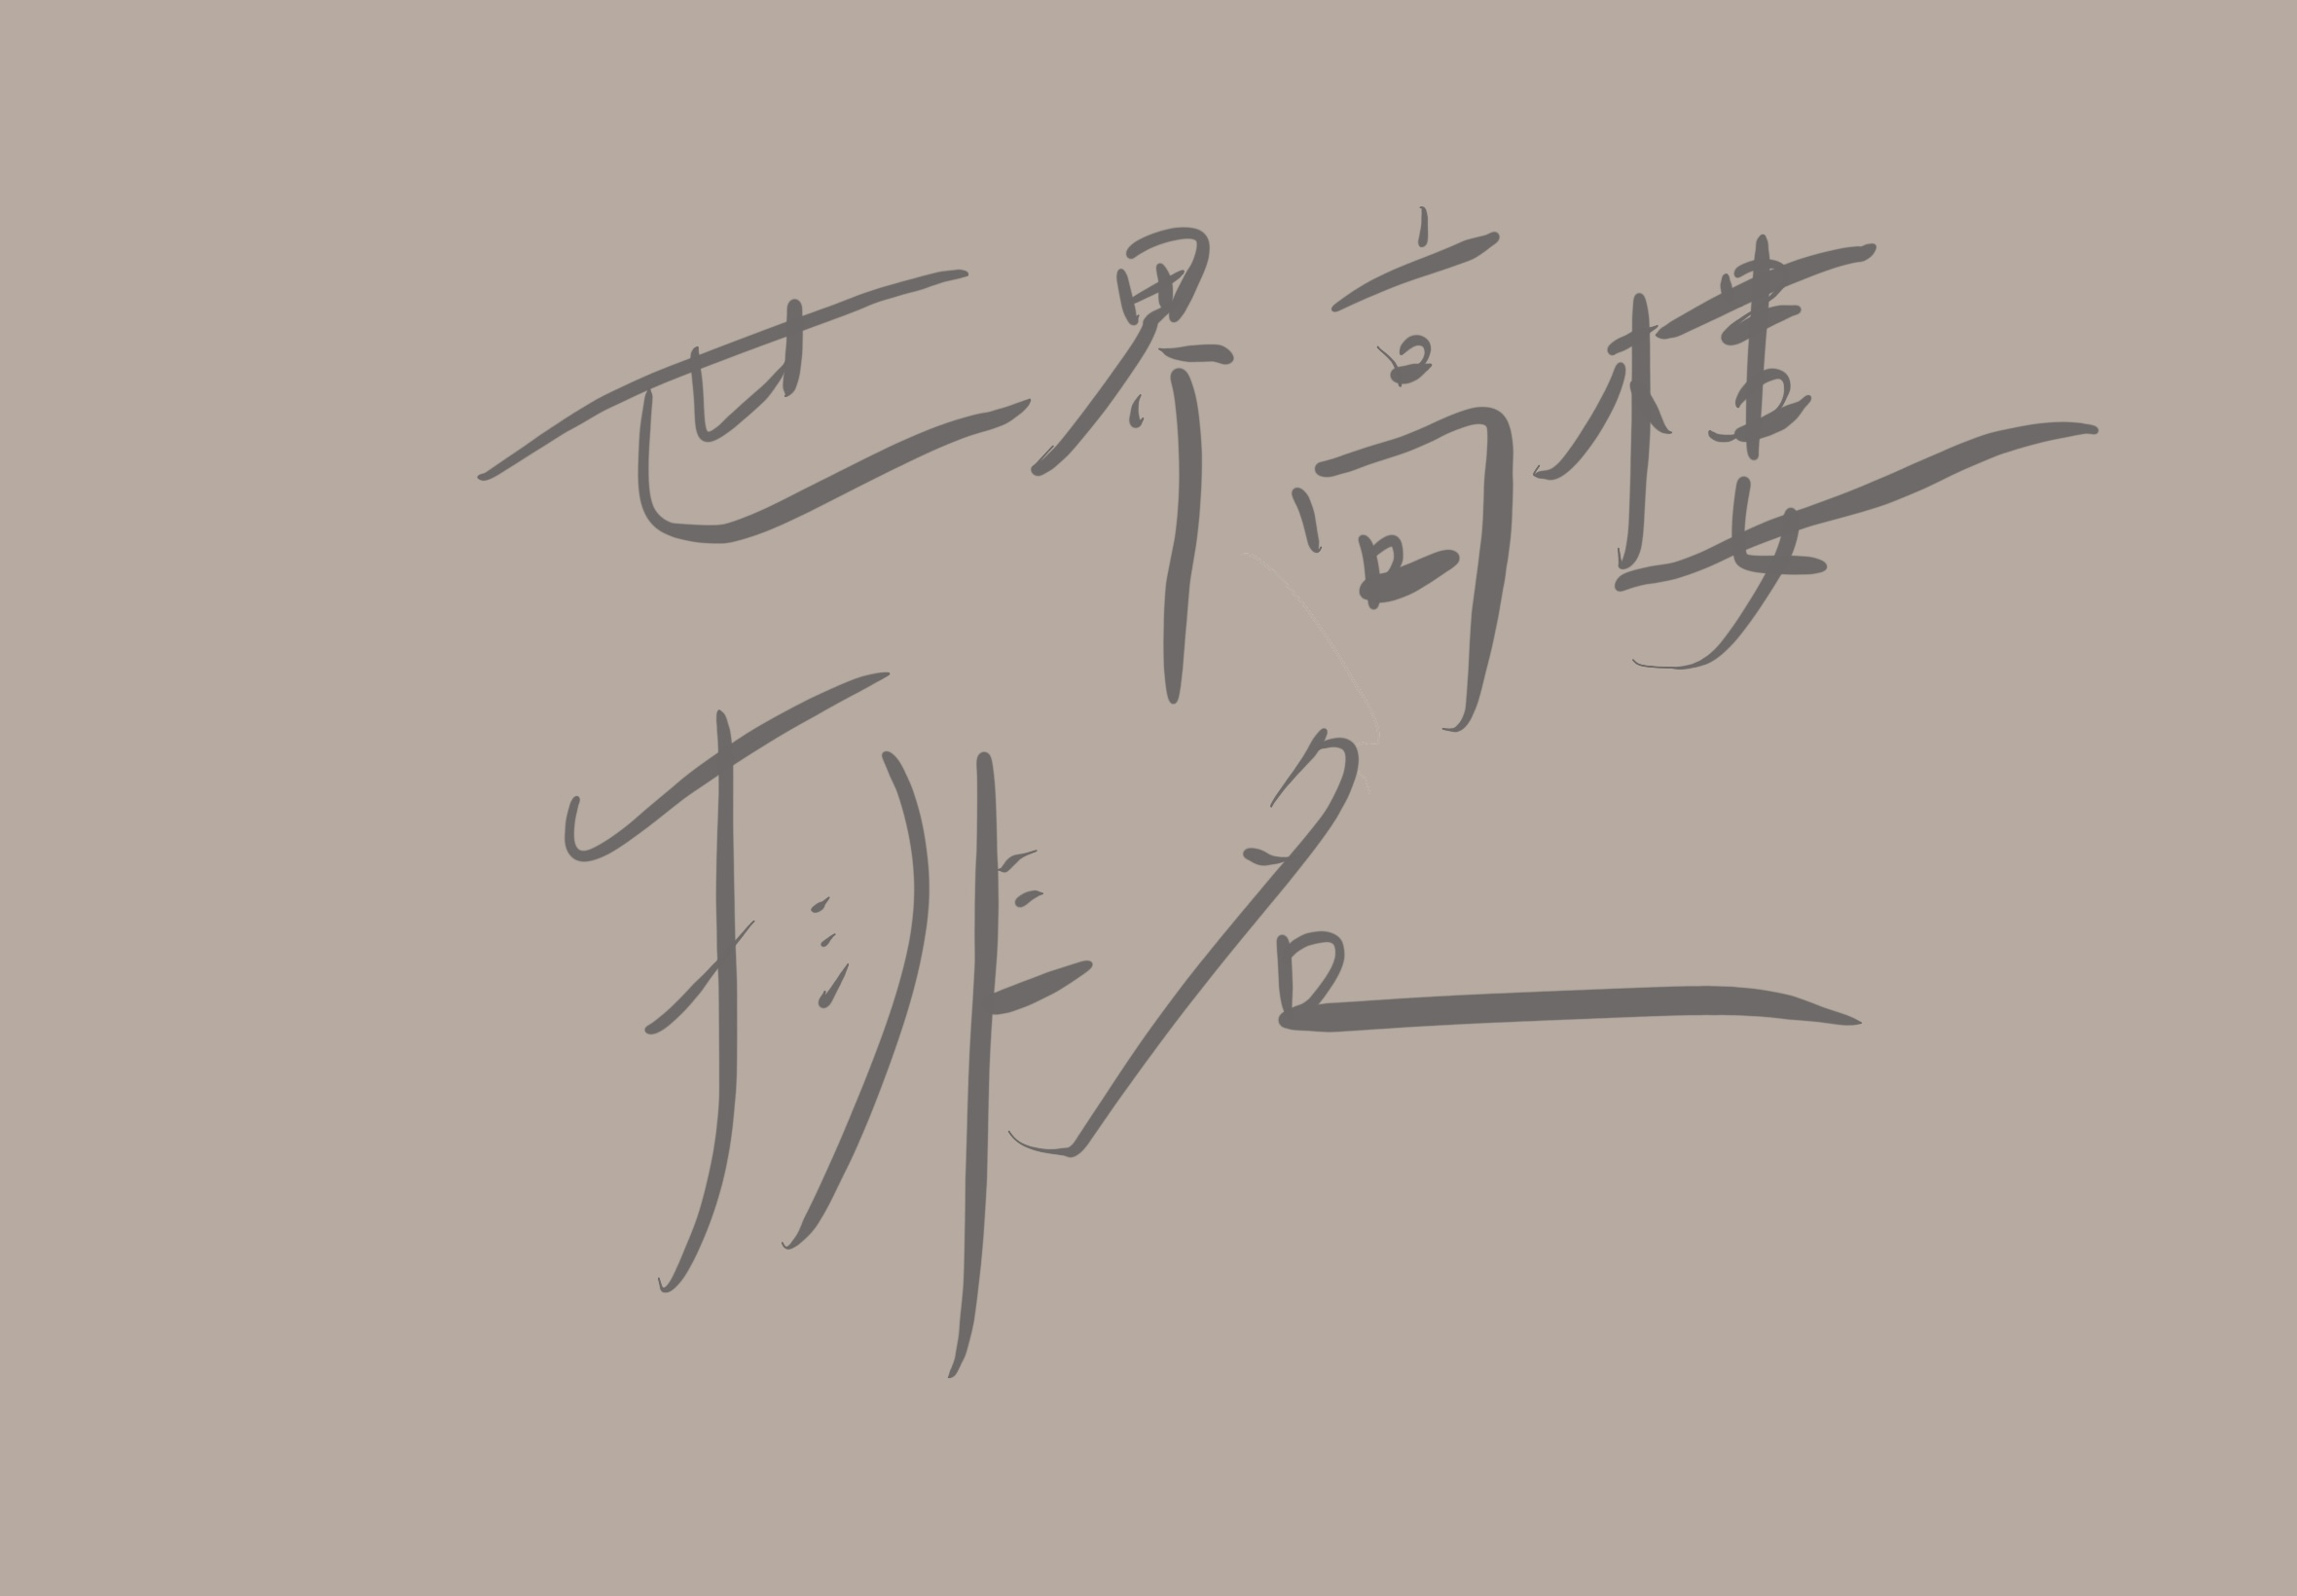 世界高樓
排名